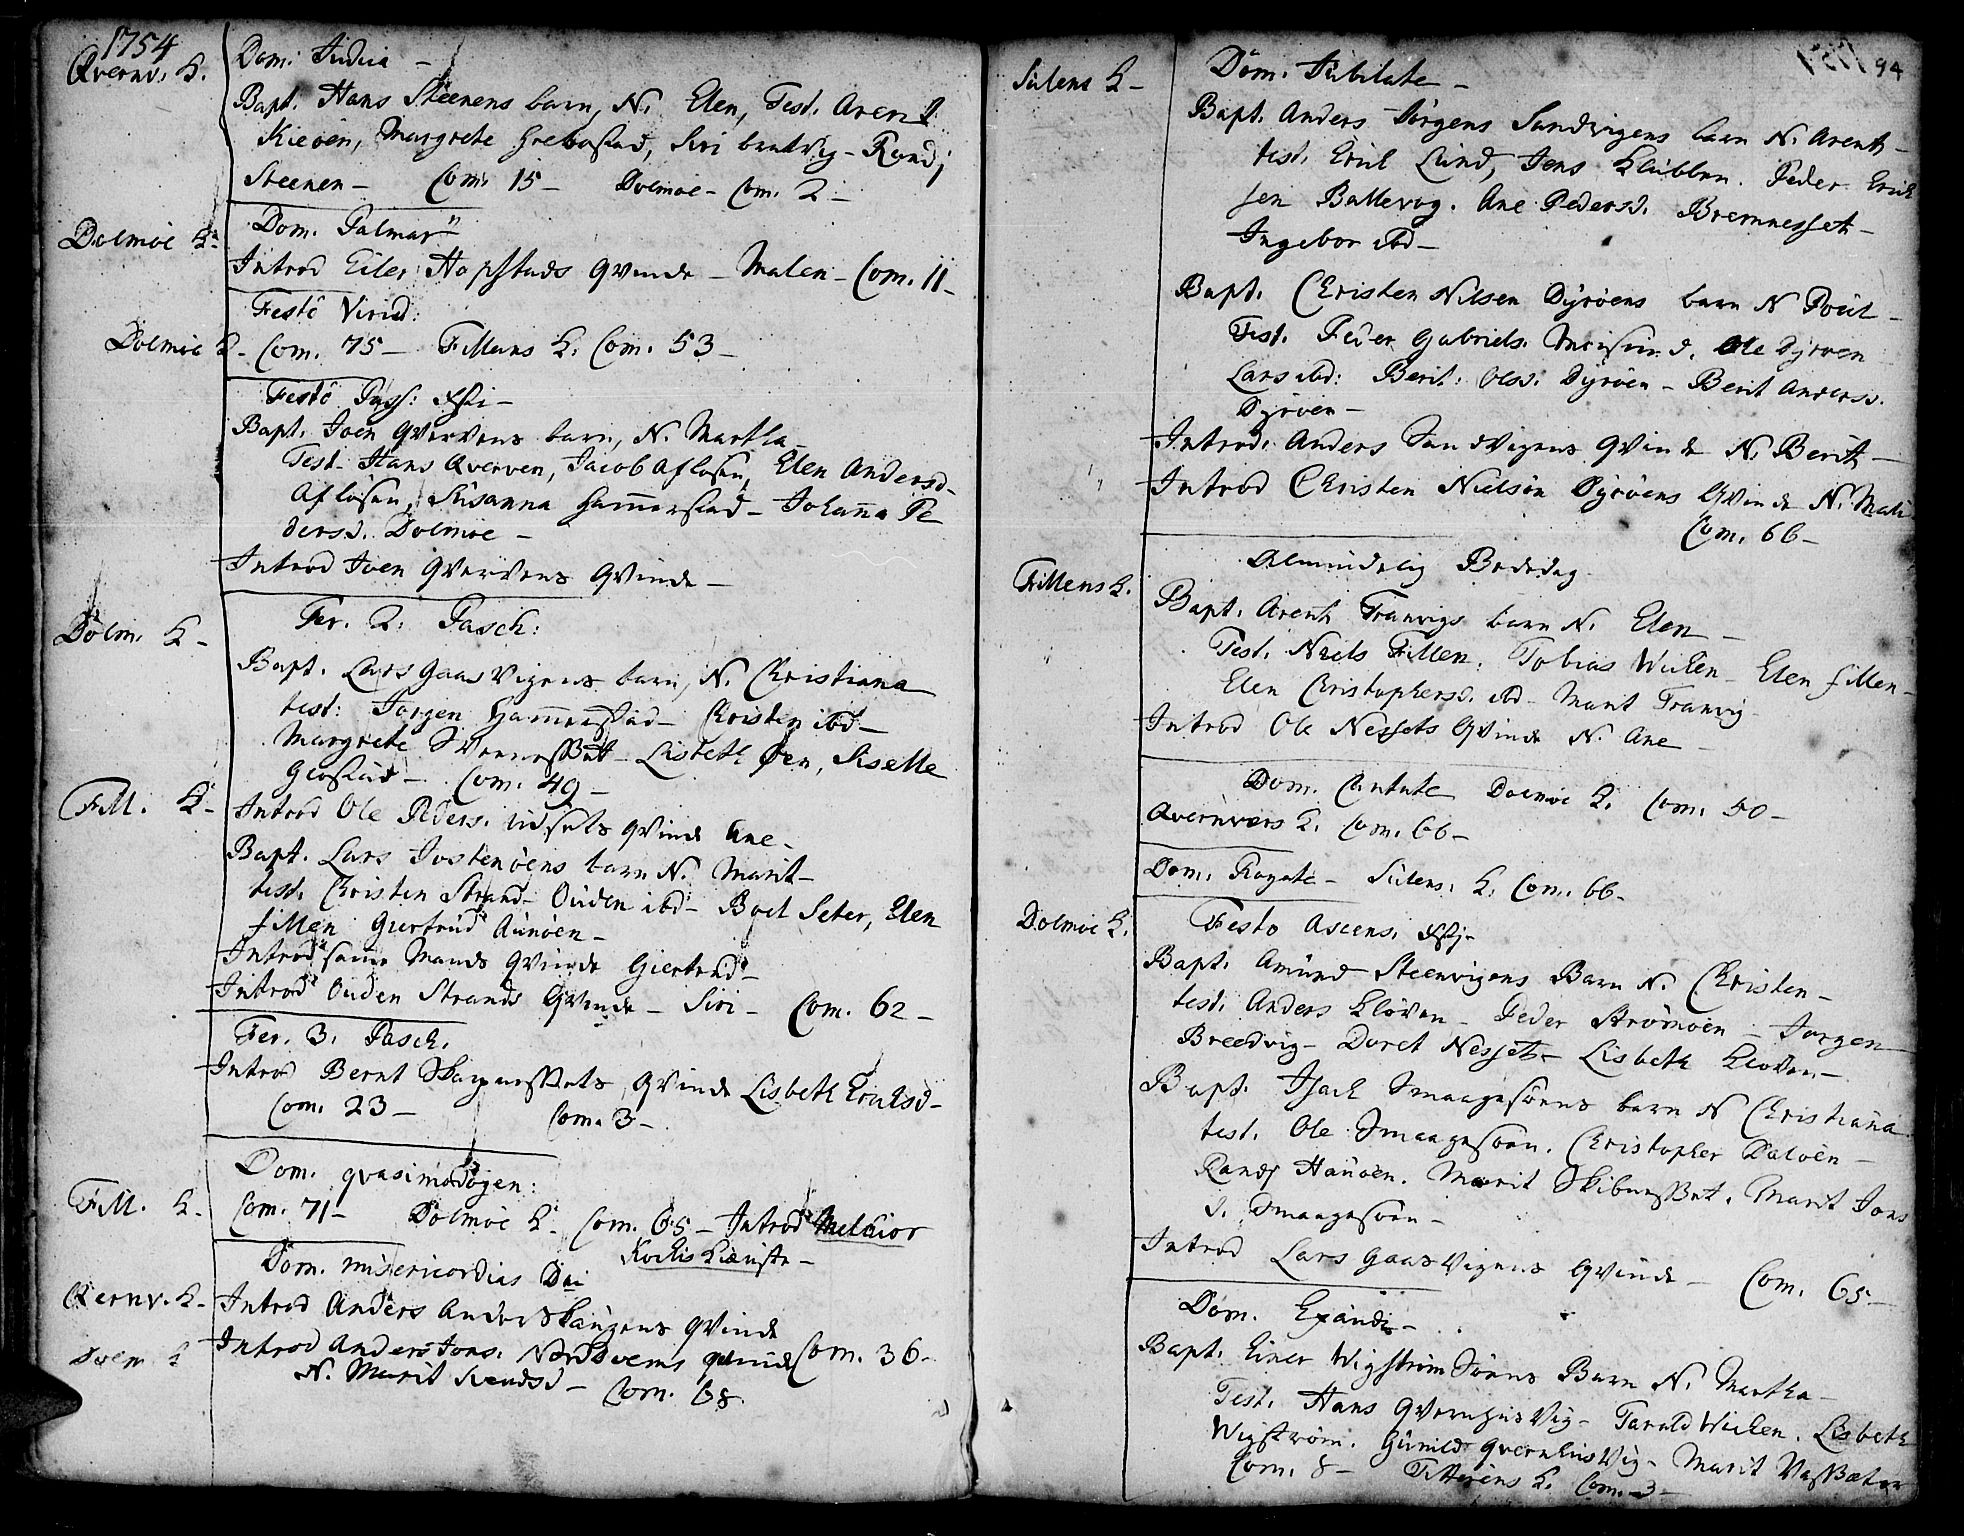 1754
Qvernv. K. Dom. Judica -
Bapt. Hans Steenens barn, N. Elen, Test. Arent
Kieöen, Margrete Grebostad, Siri bratvig - Rand;
Steenen - Com. 15 - Dolmøe - Com. 2 -
Dolmøe K. Dom. Palmar
Introd Eiler Hopstads Qvinde - Malen - Com. 11 -
Festo Virid:
Dolmøe K - Com. 75 - Fillens K. Com. 53 -
Festo Pass: Xsti -
Bapt. Joen Qvervens barn, N. Martha -
Test. Hans Qverven, Jacob Afløsen, Elen Andersd -
Afløsen, Susanna Hammerstad - Johanna Pe
dersd. Dolmøe -
Introd Joen Qvervens Qvinde -
Dolm. K - Fer. 2. Pasch:
Bapt. Lars Gaasvigens barn, N. Christiana
test: Jørgen Hammerstad - Christen ibd -
Margrete - Lisbeth Øen, Siselle
- Com. 49 -
Fill. K - Introd Ole Peders. Qvinde Ane -
Bapt. Lars Jostenøens barn N. Marit -
test. Christen Strand - Ouden ibd - Boel Seter, Elen
fillen Giertrud Aunøen -
Introd samme Mands Qvinde Giertrud -
Introd Ouden Strands Qvinde - Siri - Com. 62 -
Fer. 3. Pasch.
Introd Bernt Qvinde Lisbeth Erichsd -
Com. 23 - Com. 3 -
Dom. qvasimodogen:
Fill. K. Com. 71 - Dolmøe K - Com. 65 - Introd Melchior
Dom. misericordias Dei
Qvernv. K - Introd Anders Qvinde
Introd Anders Jons. Qvinde Com. 36 -
N. Marit - Com. 68
94
Sulens K - Dom. Jubilate -
Bapt. Anders Jørgens Sandvigens barn N. Arent -
test. Eric Lund, Jens Klubben. Peder Erich
sen Ballevog. Ane Pedersd. Bremnesset -
Ingebor ibd -
Bapt. Christen Nilsen Dyrøens barn N Poul -
Test. Peder Gabriels. Ole Dyrøen
Lars ibd: Berit: Olsd. Dyrøen - Berit Andersd.
Dyrøen -
Introd. Anders Sandvigens Qvinde N. Berit -
Introd Christen Nielsøn Dyrøens Qvinde N. Mali
Com. 66 -
Almindelig Bededag
Fillens K. Bapt. Arent Tranvigs barn N. Elen -
Test. Niels Fillen. Tobias Wichen - Elen fillen -
Elen Christophersd. ibd - Marit Tranvig
Introd Ole Nessets Qvinde N. Ane -
Dom. Cantate Dolmøe K. Com. 50 -
Qvernvers K. Com. 66 -
Dom. Rogate - Sulens. K. Com. 66 -
Dolmøe K. Festo Ascens. Xsti -
Bapt. Amund Steenvigens Barn N. Christen -
test. Anders Kløven - Peder Strømøen - Jørgen
Breedvig - Doret Nesset - Lisbeth Kløven -
Bapt. Isach Smaagesøens barn N Christiana
test. Ole Smaagesøen. Christopher Daløen -
Rands Haugen. Marit . Marit Jons
d. Smaagesøen -
Introd Lars Gaasvigens Qvinde - Com. 65 -
Dom. Exaudi -
Bapt. Einer Wigstrøm Barn N. Martha -
Test. Hans Qvernhusvig - Tarald Wichen. Lisbeth
Wigstrøm. Gunild Qvernhusvig - Marit
Com. 8 - K. Com. 3 -